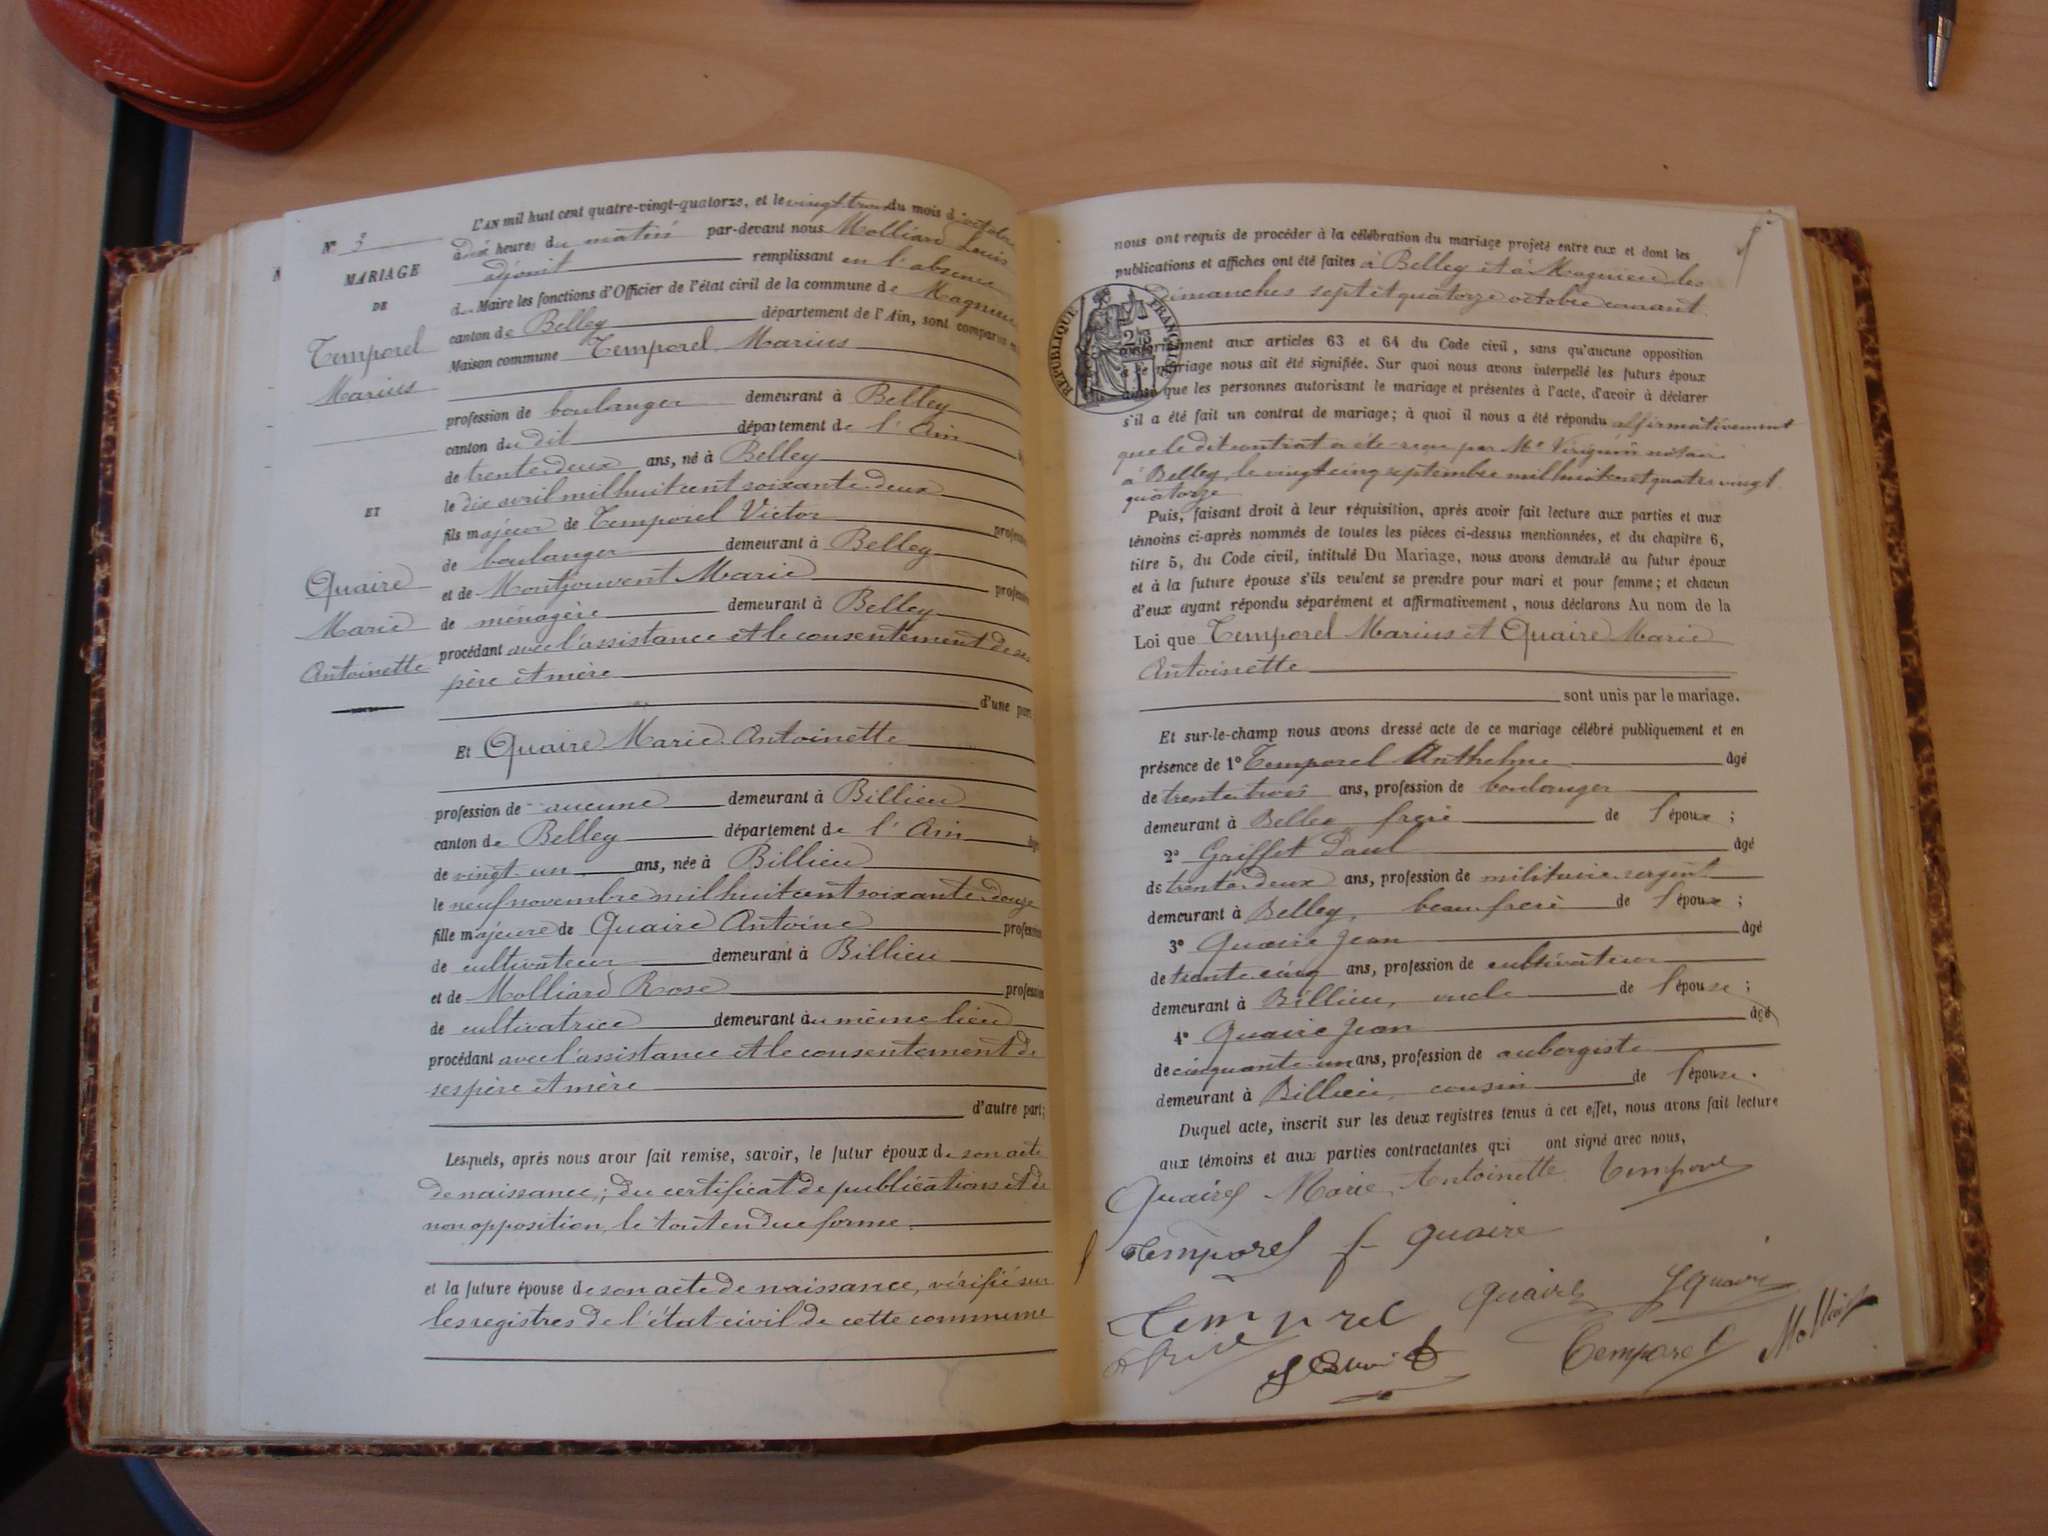 L'AN mil huit cent quatre-vingt-quatorze, et le vingt trois du mois d'octobre
N° 3 dix heures du matin par-devant nous Molliard Louis
MARIAGE
adjoint remplissant en l'absence
DE
du Maire les fonctions d'Officier de l'état civil de la commune de Magnieu
canton de Belley département de l'Ain, sont comparus en
Temporel
Maison commune Temporel Marius
Marius
profession de boulanger demeurant à Belley
canton du dit département de l'Ain
de trente deux ans, né à Belley
le dix avril mil huit cent soixante deux
ET
fils majeur de Temporel Victor profession
de boulanger demeurant à Belley
Quaire
et de Montjouvent Marie profession
Marie
de ménagère demeurant à Belley
Antoinette
procédant avec l'assistance et le consentement de ses
père et mère
d'une part;
Et Quaire Marie Antoinette
profession de aucune demeurant à Billieu
canton de Belley département de l'Ain âgée
de vingt un ans, née à Billieu
le neuf novembre mil huit cent soixante douze
fille majeure de Quaire Antoine profession
de cultivateur demeurant à Billieu
et de Molliard Rose profession
de cultivatrice demeurant au même lieu
procédant avec l'assistance et le consentement de
ses père et mère
d'autre part;
Lesquels, après nous avoir fait remise, savoir, le futur époux de son acte
de naissance; du certificat de publications et de
non opposition, le tout en due forme.
et la future épouse de son acte de naissance, vérifié sur
les registres de l'état civil de cette commune
nous ont requis de procéder à la célébration du mariage projeté entre eux et dont les
publications et affiches ont été faites à Belley et à Magnieu les
Dimanches sept et quatorze octobre courant.
RÉPUBLIQUE FRANÇAISE
conformément aux articles 63 et 64 du Code civil, sans qu'aucune opposition
à ce mariage nous ait été signifiée. Sur quoi nous avons interpellé les futurs époux
ainsi que les personnes autorisant le mariage et présentes à l'acte, d'avoir à déclarer
s'il a été fait un contrat de mariage; à quoi il nous a été répondu affirmativement
que le dit contrat a été reçu par Me notaire
à Belley, le vingt cinq septembre mil huit cent quatre vingt
quatorze
Puis, faisant droit à leur réquisition, après avoir fait lecture aux parties et aux
témoins ci-après nommés de toutes les pièces ci-dessus mentionnées, et du chapitre 6,
titre 5, du Code civil, intitulé Du Mariage, nous avons demandé au futur époux
et à la future épouse s'ils veulent se prendre pour mari et pour femme; et chacun
d'eux ayant répondu séparément et affirmativement, nous déclarons Au nom de la
Loi que Temporel Marius et Quaire Marie
Antoinette
sont unis par le mariage.
Et sur-le-champ nous avons dressé acte de ce mariage célébré publiquement et en
présence de 1° Temporel Anthelme âgé
de trente trois ans, profession de boulanger
demeurant à Belley frère de l'époux;
2° Griffet Paul âgé
de trente deux ans, profession de militaire sergent
demeurant à Belley, beau frère de l'époux;
3° Quaire Jean âgé
de trente cinq ans, profession de cultivateur
demeurant à Billieu, oncle de l'épouse;
4° Quaire Jean âgé
de cinquante un ans, profession de aubergiste
demeurant à Billieu, cousin de l'épouse.
Duquel acte, inscrit sur les deux registres tenus à cet effet, nous avons fait lecture
aux témoins et aux parties contractantes qui ont signé avec nous,
Quaire Marie Antoinette Temporel
Temporel f Quaire
Temporel Quaire J Quaire
Temporel Molliard